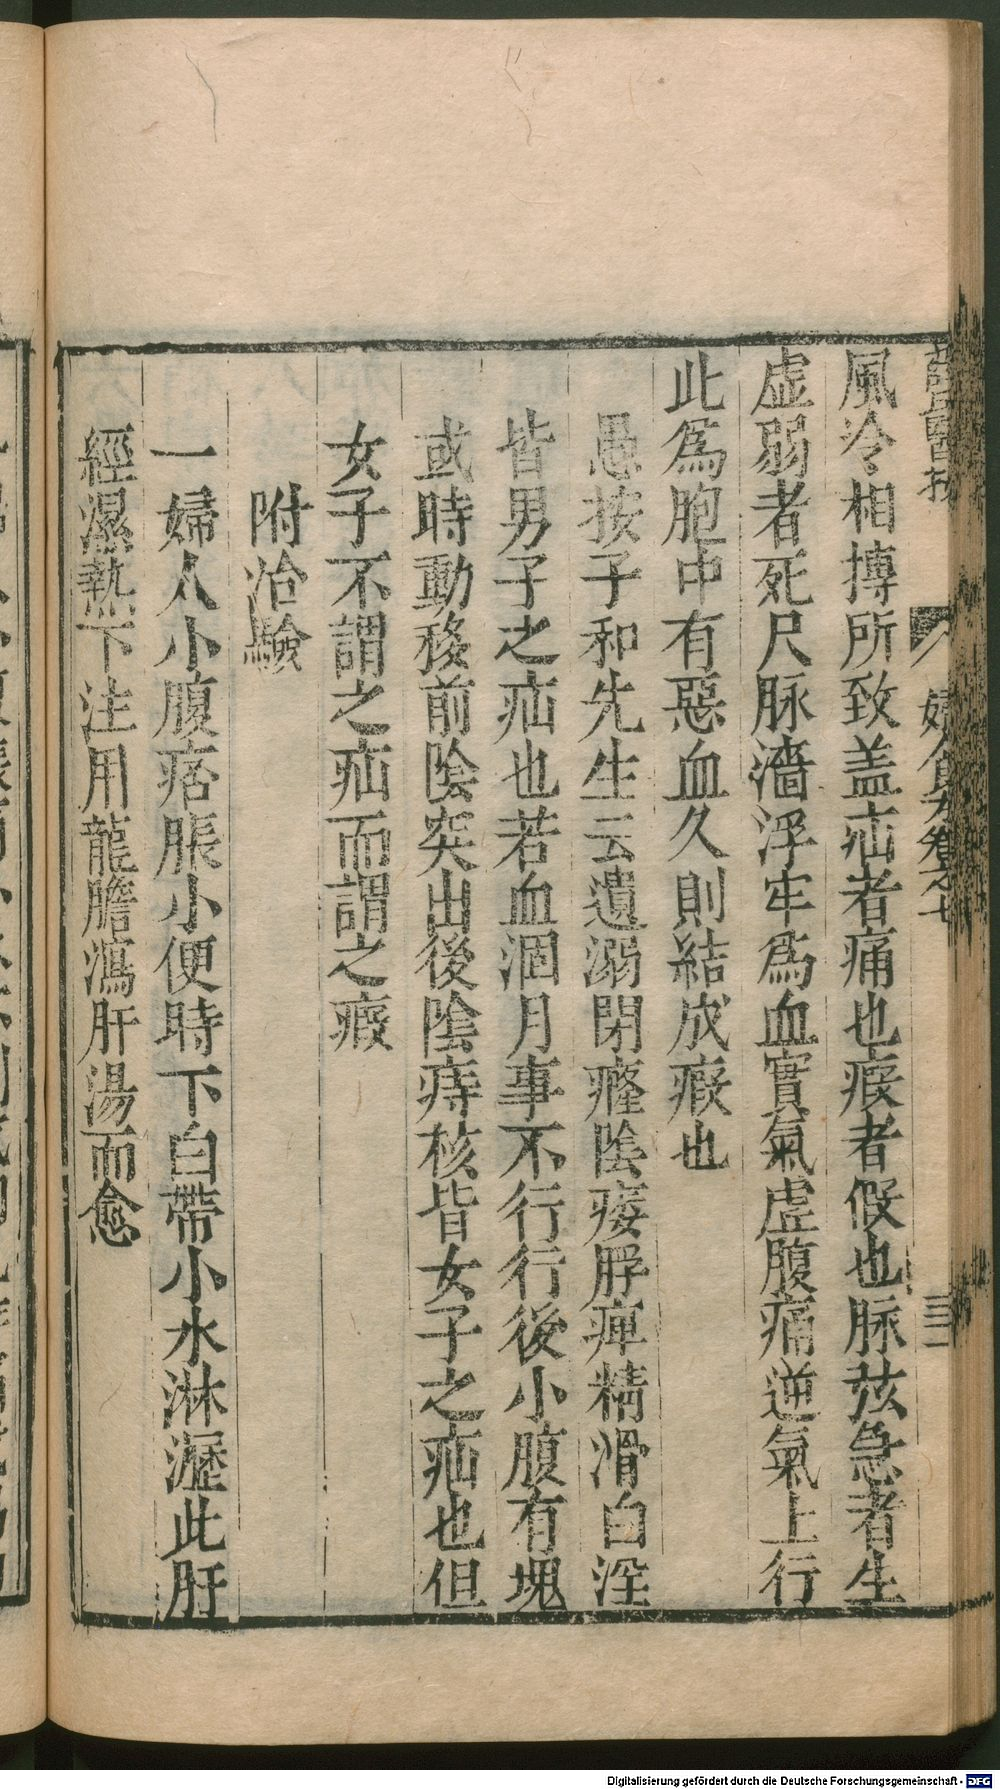 風冷相摶所致盖疝者痛也瘕者假也脉弦急者生
虚弱者死尺脉濇浮牢爲血實氣虚腹痛逆氣上行
此爲胞中有惡血久則結成瘕也
愚按子和先生云遺溺閉癃陰痿脬痺精滑白淫
皆男子之疝也若血涸月事不行行後小腹有塊
或時動移前陰突出後陰痔核皆女子之疝也但
女子不謂之疝而謂之瘕
附治驗
一婦人小腹痞脹小便時下白帶小水淋瀝此肝
經濕熱下注用龍膽瀉肝湯而愈
卷之七
Digitalisierung gefördert durch die Deutsche Forschungsgemeinschaft - DFG